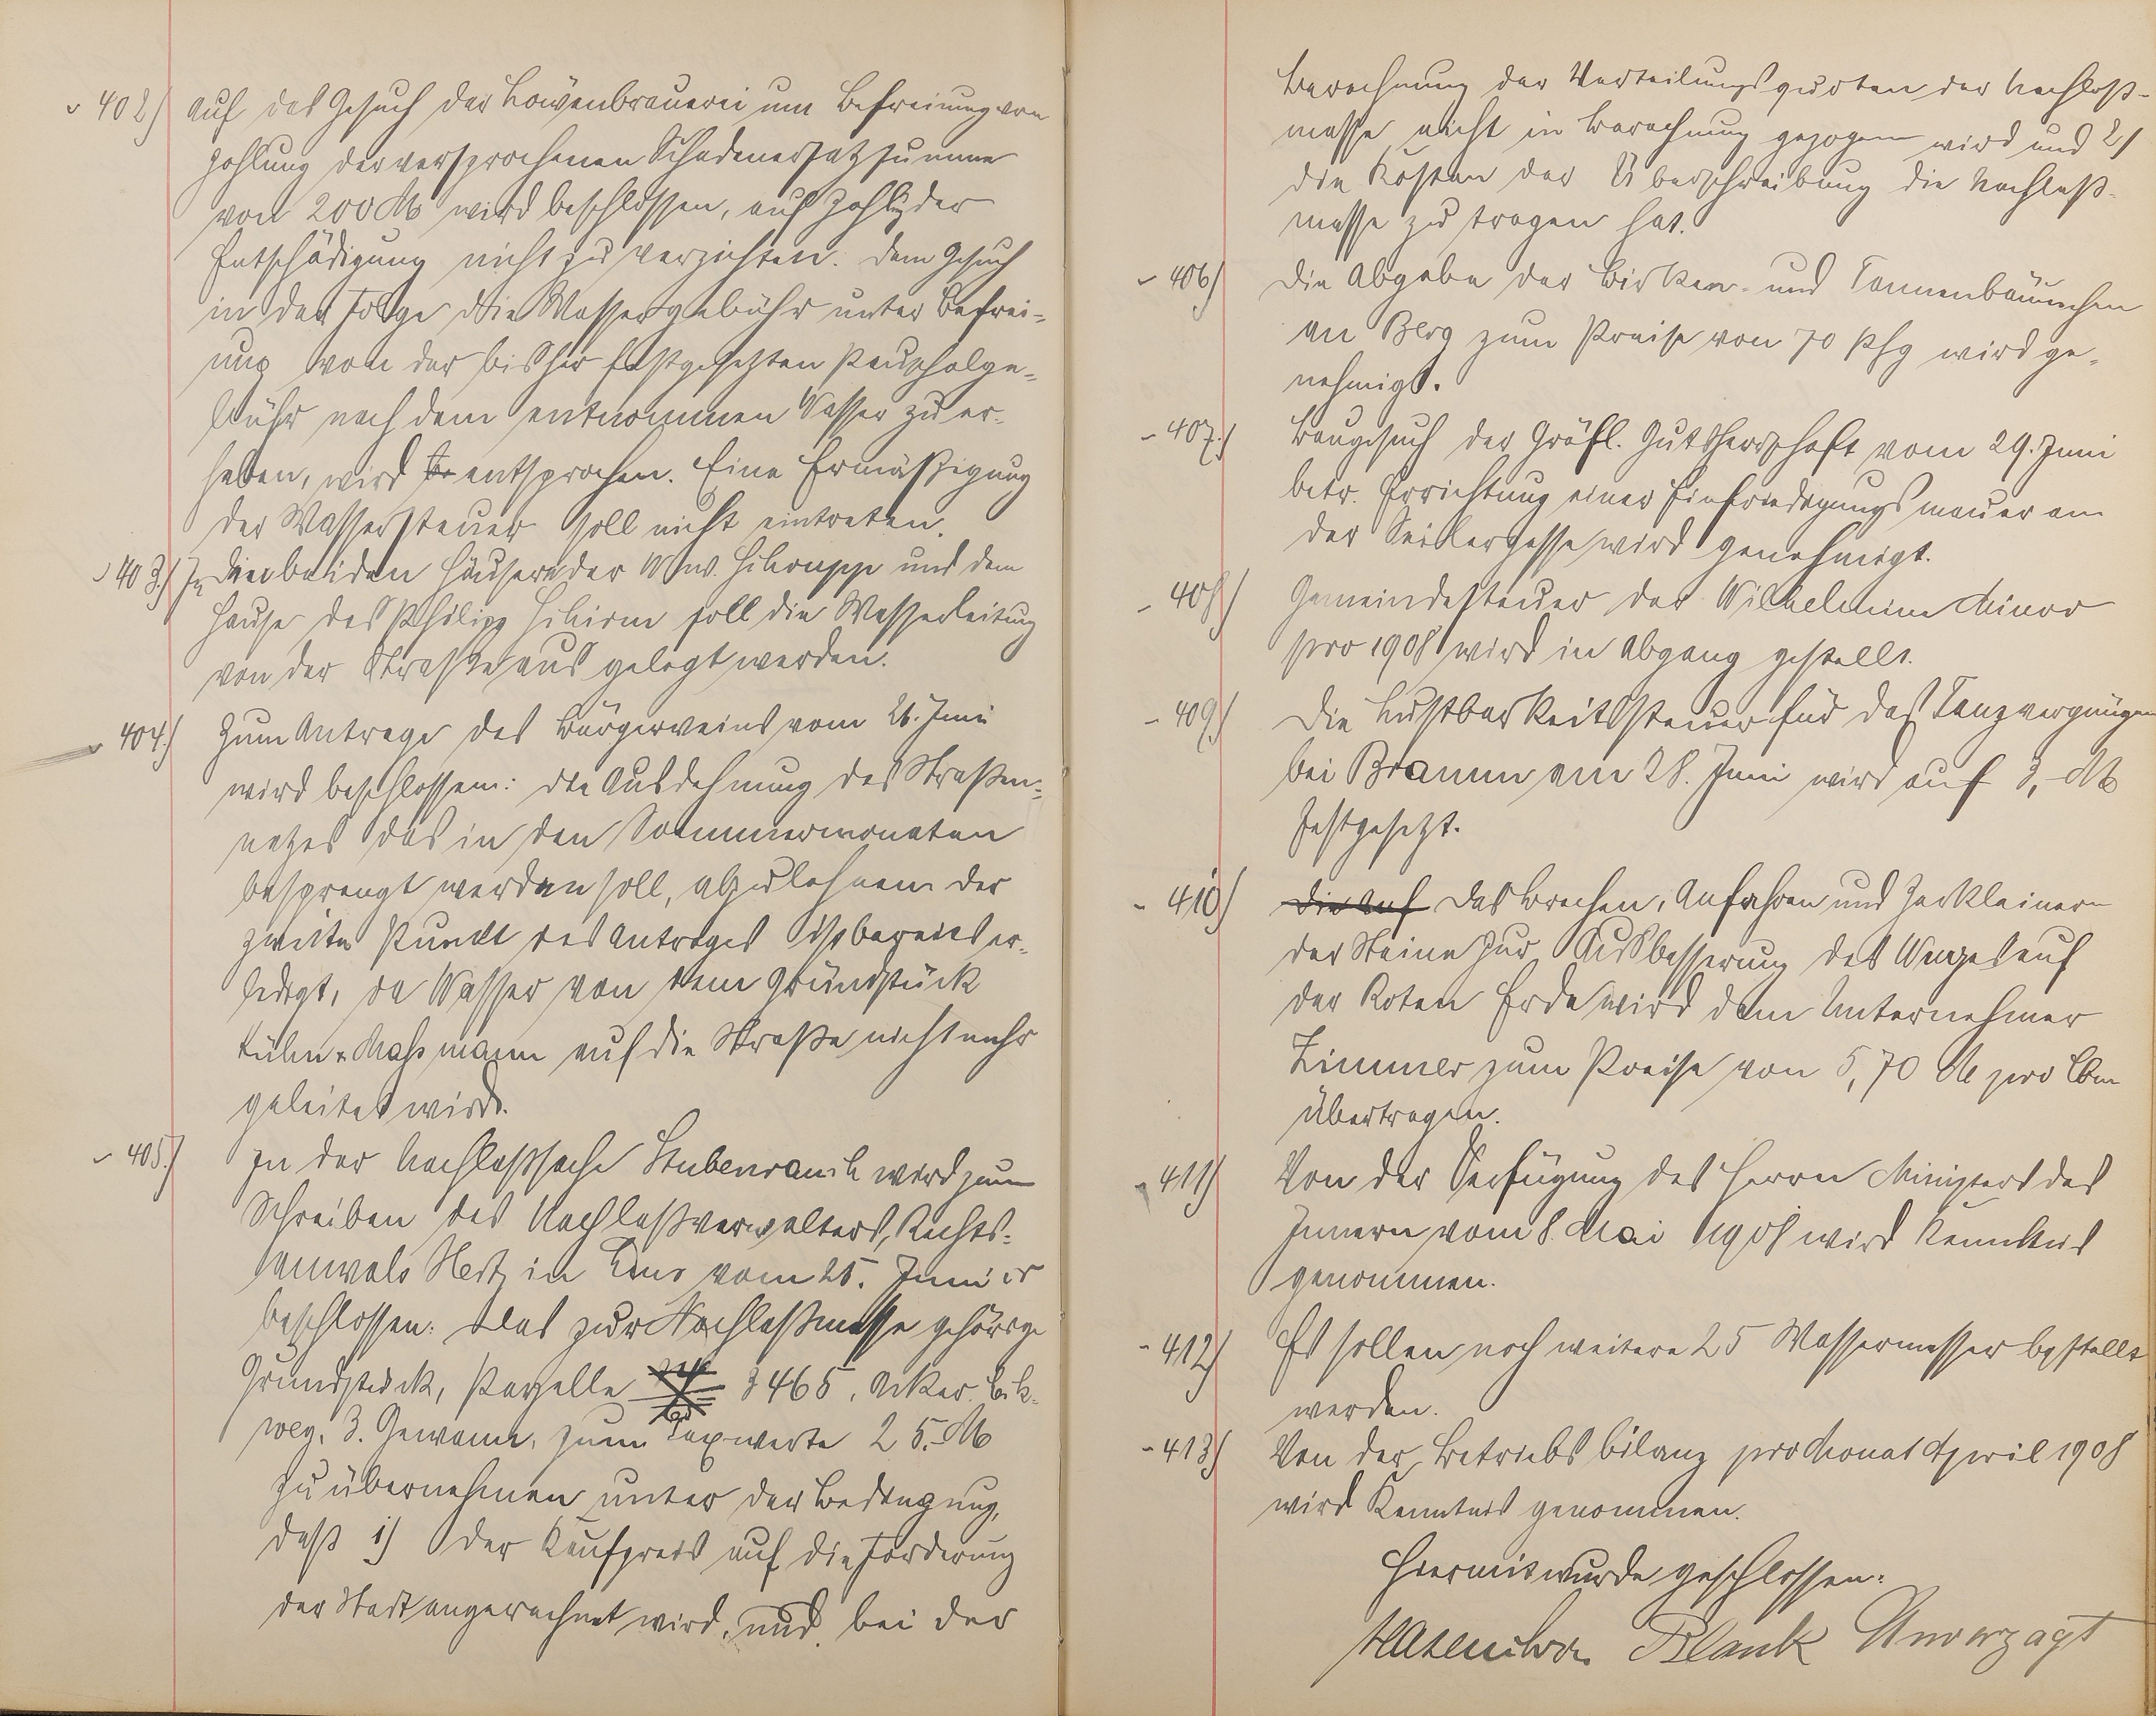 402) Auf das Gesuch der Löwenbrauerei um Befreiung von
Zahlung der versprochenen Schadenersatzsumme
von 200 M wird beschlossen, auf Zahlg der
Entschädigung nicht zu verzichten. Dem Gesuch
in der Folge die Wassergebühr unter Befrei-
ung von der bisher festgesetzten Pauschalge-
bühr nach dem entnommen Wasser zu er-
heben, wird entsprochen. Eine Ermäßigung
der Wassersteuer soll nicht eintreten.
403.) In den beiden Häusern der Wwe. und dem
Hause des Philipp soll die Wasserleitung
von der Straße aus gelegt werden.
404.) Zum Antrage des Bürgervereins vom 26. Juni
wird beschlossen: die Ausdehnung des Straßen-
netzes das in den Sommermonaten
besprengt werden soll, abzulehnen der
zweite Punkt des Antrages ist bereits er-
ledigt, da Wasser von dem Grundstück
Kühn & Maßmann auf die Straße nicht mehr
geleitet wird.
405.) In der Nachlaßsache Stubenrauch wird zum
Schreiben des Nachlaßverwalters, Rechts-
anwalts in Ems vom 25. Juni cr
beschlossen: Das zur Nachlaßmasse gehörige
Grundstück, Parzelle 3465, Acker
weg, 3. Gewann, zum Taxwerte 25.- M
zu übernehmen unter der Bedingung,
daß 1) der Kaufpreis auf die Forderung
der Stadt angerechnet wird, und bei der
Berechnung der Verteilungsquoten der Nachlaß-
masse nicht in Berechnung gezogen wird und 2)
die Kosten der Überschreibung die Nachlaß-
masse zu tragen hat.
406) Die Abgabe der Birken- und Tannenbäumchen
an Berg zum Preise von 70 Pfg wird ge-
nehmigt.
407.) Baugesuch der Gräfl. Gutsherrschaft vom 29. Juni
betr. Errichtung einer Einfriedigungsmauer an
der Seilergasse wird genehmigt.
408) Gemeindesteuer der Wilhelmine Minor
pro 1908 wird in Abgang gestellt.
409) Die Lustbarkeitssteuer für das Tanzvergnügen
bei Bramm am 28. Juni wird auf 3,- M
festgesetzt.
410) Die Auf Das Brechen, Anfahren und Zerkleinern
der Steine zur Ausbesserung des Weges auf
der Roten Erde wird dem Unternehmer
Zimmer zum Preise von 5,70 M pro Cbm
übertragen.
411) Von der Verfügung des Herrn Ministers des
Innern vom 8. Mai 1908 wird Kenntnis
genommen.
412) Es sollen noch weitere 25 Wassermesser bestellt
werden.
413) Von der Betriebsbilanz pro Monat April 1908
wird Kenntnis genommen.
Hiermit wurde geschlossen:
Blank Unverzagt